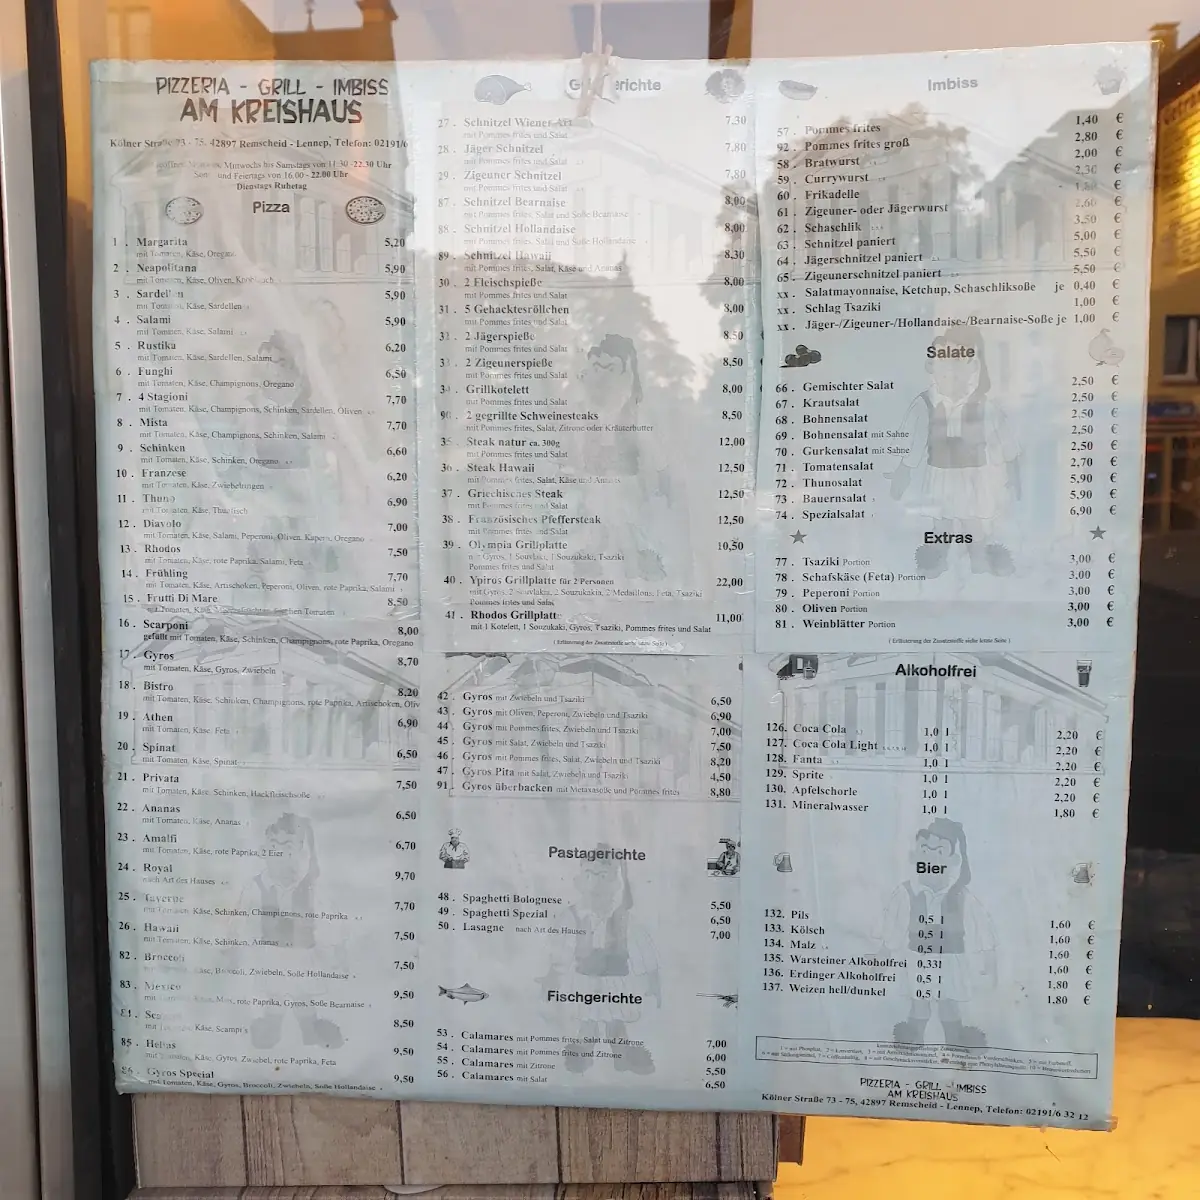 PIZZERIA - GRILL - IMBISS
AM KREISHAUS
Kölner Straße 73 - 75, 42897 Remscheid - Lennep, Telefon: 02191/6
Mittwochs bis Samstags von 11:30 -22.30 Uhr
Sonn und Feiertags von 16.00 - 22.00 Uhr
Dienstags Ruhetag
Pizza
1 . Margarita 5,20
mit Tomaten, Käse, Oregano
2 . Neapolitana 5,90
mit Tomaten, Käse, Oliven, Knoblauch
3 . Sardellen 5,90
mit Tomaten, Käse, Sardellen
4 . Salami 5,90
mit Tomaten, Käse, Salami
5 . Rustika 6,20
mit Tomaten, Käse, Sardellen, Salami
6 . Funghi 6,50
mit Tomaten, Käse, Champignons, Oregano
7 . 4 Stagioni 7,70
mit Tomaten, Käse, Champignons, Schinken, Sardellen, Oliven
8 . Mista 7,70
mit Tomaten, Käse, Champignons, Schinken, Salami
9 . Schinken 6,60
mit Tomaten, Käse, Schinken, Oregano
10 . Franzese 6,20
mit Tomaten, Käse, Zwiebelringen
11 . Thuno 6,90
mit Tomaten, Käse, Thunfisch
12 . Diavolo 7,00
mit Tomaten, Käse, Salami, Peperoni, Oliven, Kapern, Oregano
13 . Rhodos 7,50
mit Tomaten, Käse, rote Paprika, Salami, Feta
14 . Frühling 7,70
mit Tomaten, Käse, Artischoken, Peperoni, Oliven, rote Paprika, Salami
15 . Frutti Di Mare 8,50
mit Tomaten, Käse, frischen Tomaten
16 . Scarponi 8,00
gefüllt mit Tomaten, Käse, Schinken, Champignons, rote Paprika, Oregano
17 . Gyros 8,70
mit Tomaten, Käse, Gyros, Zwiebeln
18 . Bistro 8,20
mit Tomaten, Käse, Schinken, Champignons, rote Paprika, Artischoken, Oliv
19 . Athen 6,90
mit Tomaten, Käse, Feta
20 . Spinat 6,50
mit Tomaten, Käse, Spinat
21 . Privata 7,50
mit Tomaten, Käse, Schinken, Hackfleischsoße
22 . Ananas 6,50
mit Tomaten, Käse, Ananas
23 . Amalfi 6,70
mit Tomaten, Käse, rote Paprika, 2 Eier
24 . Royal 9,70
nach Art des Hauses
25 . Taverne 7,70
mit Tomaten, Käse, Schinken, Champignons, rote Paprika
26 . Hawaii 7,50
mit Tomaten, Käse, Schinken, Ananas
82 . Broccoli 7,50
Käse, Broccoli, Zwiebeln, Soße Hollandaise
83 . Mexico 9,50
Mais, rote Paprika, Gyros, Soße Bearnaise
84 . 8,50
Käse, Scampi's
85 . Hellas 9,50
mit Tomaten, Käse, Gyros, Zwiebel, rote Paprika, Feta
86 . Gyros Special 9,50
mit Tomaten, Käse, Gyros, Broccoli, Zwiebeln, Soße Hollandaise
27 . Schnitzel Wiener Art 7,30
mit Pommes frites und Salat
28 . Jäger Schnitzel 7,80
mit Pommes frites und Salat
29 . Zigeuner Schnitzel 7,80
mit Pommes frites und Salat
87 . Schnitzel Bearnaise 8,00
mit Pommes frites, Salat und Soße Bearnaise
88 . Schnitzel Hollandaise 8,00
mit Pommes frites, Salat und Soße Hollandaise
89 . Schnitzel Hawaii 8,30
mit Pommes frites, Salat, Käse und Ananas
30 . 2 Fleischspieße 8,00
mit Pommes frites und Salat
31 . 5 Gehacktesröllchen 8,00
mit Pommes frites und Salat
32 . 2 Jägerspieße 8,50
mit Pommes frites und Salat
33 . 2 Zigeunerspieße 8,50
mit Pommes frites und Salat
34 . Grillkotelett 8,00
mit Pommes frites und Salat
90 . 2 gegrillte Schweinesteaks 8,50
mit Pommes frites, Salat, Zitrone oder Kräuterbutter
35 . Steak natur ca. 300g 12,00
mit Pommes frites und Salat
36 . Steak Hawaii 12,50
mit Pommes frites, Salat, Käse und Ananas
37 . Griechisches Steak 12,50
mit Pommes frites und Salat
38 . Französisches Pfeffersteak 12,50
mit Pommes frites und Salat
39 . Olympia Grillplatte 10,50
mit Gyros, 1 Souvlaki, 1 Souzukaki, Tsaziki
Pommes frites und Salat
40 . Ypiros Grillplatte für 2 Personen 22,00
mit Gyros, 2 Souvlakia, 2 Souzukakia, 2 Medaillons, Feta, Tsaziki
Pommes frites und Salat
41 . Rhodos Grillplatte 11,00
mit 1 Kotelett, 1 Souzukaki, Gyros, Tsaziki, Pommes frites und Salat
( Erläuterung der Zusatzstoffe siehe letzte Seite )
42 . Gyros mit Zwiebeln und Tsaziki 6,50
43 . Gyros mit Oliven, Peperoni, Zwiebeln und Tsaziki 6,90
44 . Gyros mit Pommes frites, Zwiebeln und Tsaziki 7,00
45 . Gyros mit Salat, Zwiebeln und Tsaziki 7,50
46 . Gyros mit Pommes frites, Salat, Zwiebeln und Tsaziki 8,20
47 . Gyros Pita mit Salat, Zwiebeln und Tsaziki 4,50
91 . Gyros überbacken mit Metaxasoße und Pommes frites 8,80
Pastagerichte
48 . Spaghetti Bolognese 5,50
49 . Spaghetti Spezial 6,50
50 . Lasagne nach Art des Hauses 7,00
Fischgerichte
53 . Calamares mit Pommes frites, Salat und Zitrone 7,00
54 . Calamares mit Pommes frites und Zitrone 6,00
55 . Calamares mit Zitrone 5,50
56 . Calamares mit Salat 6,50
Imbiss
57 . Pommes frites 1,40 €
92 . Pommes frites groß 2,80 €
58 . Bratwurst 2,00 €
59 . Currywurst 2,30 €
60 . Frikadelle 1,80 €
61 . Zigeuner- oder Jägerwurst 2,60 €
62 . Schaschlik 3,50 €
63 . Schnitzel paniert 5,00 €
64 . Jägerschnitzel paniert 5,50 €
65 . Zigeunerschnitzel paniert 5,50 €
xx . Salatmayonnaise, Ketchup, Schaschliksoße je 0,40 €
xx . Schlag Tsaziki 1,00 €
xx . Jäger-/Zigeuner-/Hollandaise-/Bearnaise-Soße je 1,00 €
Salate
66 . Gemischter Salat 2,50 €
67 . Krautsalat 2,50 €
68 . Bohnensalat 2,50 €
69 . Bohnensalat mit Sahne 2,50 €
70 . Gurkensalat mit Sahne 2,50 €
71 . Tomatensalat 2,70 €
72 . Thunosalat 5,90 €
73 . Bauernsalat 5,90 €
74 . Spezialsalat 6,90 €
Extras
77 . Tsaziki Portion 3,00 €
78 . Schafskäse (Feta) Portion 3,00 €
79 . Peperoni Portion 3,00 €
80 . Oliven Portion 3,00 €
81 . Weinblätter Portion 3,00 €
( Erläuterung der Zusatzstoffe siehe letzte Seite )
Alkoholfrei
126. Coca Cola 1,0 l 2,20 €
127. Coca Cola Light 1,0 l 2,20 €
128. Fanta 1,0 l 2,20 €
129. Sprite 1,0 l 2,20 €
130. Apfelschorle 1,0 l 2,20 €
131. Mineralwasser 1,0 l 1,80 €
Bier
132. Pils 0,5 l 1,60 €
133. Kölsch 0,5 l 1,60 €
134. Malz 0,5 l 1,60 €
135. Warsteiner Alkoholfrei 0,33l 1,60 €
136. Erdinger Alkoholfrei 0,5 l 1,80 €
137. Weizen hell/dunkel 0,5 l 1,80 €
PIZZERIA - GRILL - IMBISS
AM KREISHAUS
Kölner Straße 73 - 75, 42897 Remscheid - Lennep, Telefon: 02191/6 32 12